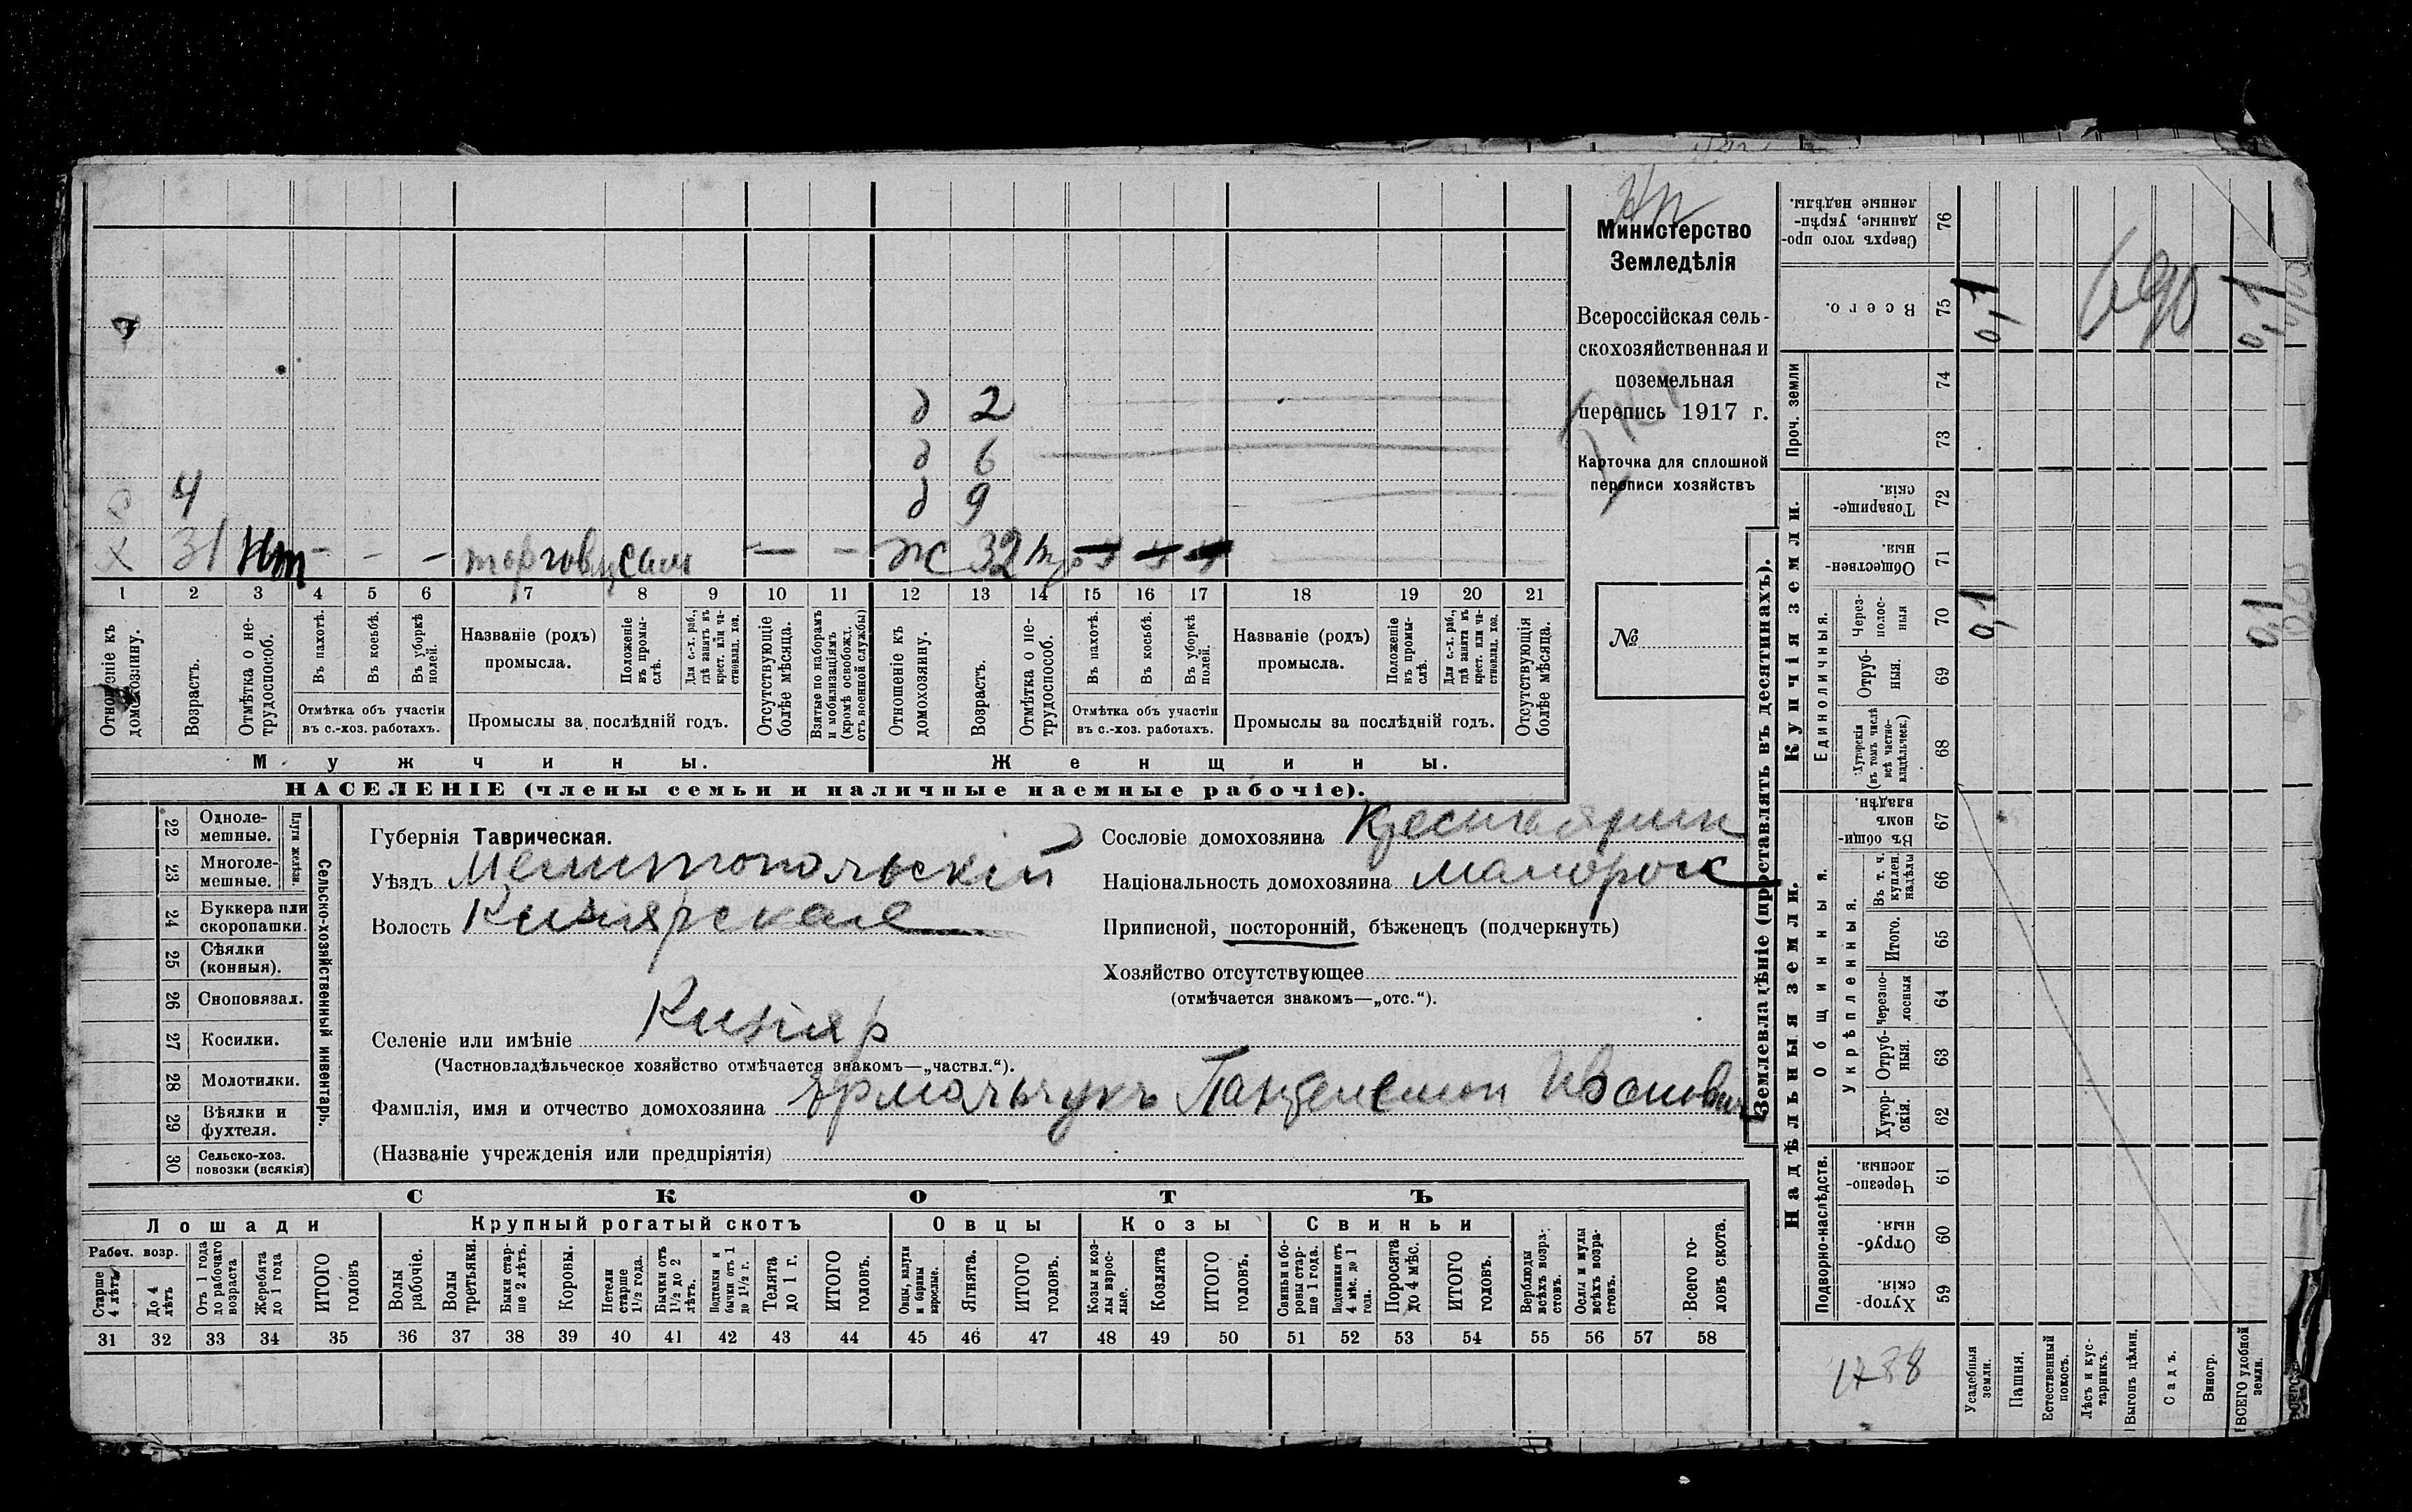 Нп
Министерство
Земледѣлія
Всероссійская сель-
скохозяйственная и
поземельная
перепись 1917 г.
Карточка для сплошной
переписи хозяйствъ
№
д 2
д 6
4 д 9
х 31 Нт - - - торговц сам — - ж 32
1 2 3 4 5 6 7 8 9 10 11 12 13 14 15 16 17 18 19 20 21
Отношеніе къ домохозяину.
Возрастъ.
Отмѣтка о не-трудоспособ.
Въ пахотѣ.
Въ косьбѣ.
Въ уборкѣ полей.
Отмѣтка объ участіи
въ с.-хоз. работахъ.
Названіе (родъ)
промысла.
Положеніе въ промы-слѣ.
Для с.-х. раб., гдѣ занятъ въ крест. или ча-стновлад. хоз.
Промыслы за послѣдній годъ.
Отсутствующіе болѣе мѣсяца.
Взятые по наборамъ и мобилизаціямъ (кромѣ освобожд. отъ военной службы)
Отношеніе къ домохозяину.
Возрастъ.
Отмѣтка о не-трудоспособ.
Въ пахотѣ.
Въ косьбѣ.
Въ уборкѣ полей.
Отмѣтка объ участіи
въ с.-хоз. работахъ.
Названіе (родъ)
промысла.
Положеніе въ промы-слѣ.
Для с.-х. раб., гдѣ занята въ крест. или ча-стновлад. хоз.
Промыслы за послѣдній годъ.
Отсутствующія болѣе мѣсяца.
Мужчины.
Женщины.
НАСЕЛЕНІЕ (члены семьи и наличные наемные рабочіе).
22 Одноле-мешные.
23 Многоле-мешные.
Плуги желѣзн.
24 Буккера или скоропашки.
25 Сѣялки (конныя).
26 Сноповязал.
27 Косилки.
28 Молотилки.
29 Вѣялки и фухтеля.
30 Сельско-хоз. повозки (всякія)
Сельско-хозяйственный инвентарь.
Губернія Таврическая.
Уѣздъ Мелитопольскій
Волость Кизіярская
Селеніе или имѣніе Кизіяр
(Частновладѣльческое хозяйство отмѣчается знакомъ—„частвл.“).
Фамилія, имя и отчество домохозяина Ярмольчукъ Пантелемон Иванович
(Названіе учрежденія или предпріятія)
Сословіе домохозяина Крестьянин
Національность домохозяина малорос
Приписной, посторонній, бѣженецъ (подчеркнуть)
Хозяйство отсутствующее
(отмѣчается знакомъ—„отс.“).
СКОТЪ
Лошади
Крупный рогатый скотъ
Овцы
Козы
Свиньи
Рабоч. возр.
Старше 4 лѣтъ
До 4 лѣтъ
Отъ 1 года до рабочаго возраста
Жеребята до 1 года
ИТОГО головъ
Волы рабочіе.
Волы третьяки.
Быки стар-ше 2 лѣтъ.
Коровы.
Нетели старше 1½ года.
Бычки отъ 1½ до 2 лѣтъ.
Подтелки и бычки отъ 1 до 1½ г.
Телята до 1 г.
ИТОГО головъ.
Овцы, валухи и бараны взрослые.
Ягнята.
ИТОГО головъ.
Козы и коз-лы взрос-лые.
Козлята
ИТОГО головъ.
Свиньи и бо-ровы стар-ше 1 года.
Подсвинки отъ 4 мѣс. до 1 года.
Поросята до 4 мѣс.
ИТОГО головъ.
Верблюды всѣхъ возра-стовъ.
Ослы и мулы всѣхъ возра-стовъ.
Всего го-ловъ скота.
31 32 33 34 35 36 37 38 39 40 41 42 43 44 45 46 47 48 49 50 51 52 53 54 55 56 57 58
Землевладѣніе (проставлять въ десятинахъ).
Сверхъ того про-данные, укрѣп-ленные надѣлы. 76
Всего. 75 0,1 0,1
690
Проч. земли
74
73
Купчія земли.
Товарище-скія. 72
Обществен-ныя. 71
Единоличныя.
Через-полос-ныя 70 0,1 0,1
Отруб-ныя. 69
Хуторскія (въ томъ числѣ всѣ частно-владѣльческ.) 68
Надѣльныя земли.
Общинныя.
Въ общи-номъ владѣн. 67
Въ т. ч. куплен. надѣлы 66
Укрѣпленныя.
Итого. 65
Черезпо-лосныя 64
Отруб-ныя. 63
Хутор-скія. 62
Подворно-наслѣдств.
Черезпо-лосныя. 61
Отруб-ныя. 60
Хутор-скія. 59
1488
Усадебныя земли.
Пашня.
Естественный покосъ.
Лѣсъ и кус-тарникъ.
Выгонъ цѣлин.
Садъ.
Виногр.
ВСЕГО удобной земли.